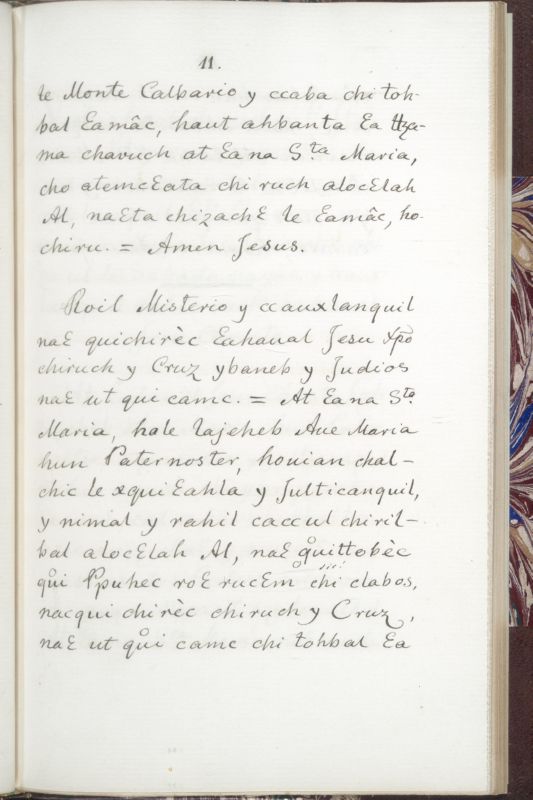 11.
le Monte Calbario y ccaba chi toh-
bal Ɛamâc, haut ahbanta Ɛa
ma chavuch at Ɛana S.ta Maria,
cho atemcƐata chi ruch alocƐlah
Al, naƐta chizachƐ le Ɛamâc, ho-
chiru. = Amen Jesus.
Roil Misterio y ccauxlanquil
naƐ quichirèc Ɛahaual Jesu xpõ
chiruch y Cruz ybaneb y Judios
naƐ ut qui camc. = At Ɛana Sta
Maria, hale lajeheb Aue Maria
hun Paternoster, houian chal-
chic le xqui Ɛahla y Julticanquil,
y nimal y rahil caccul chiril-
bal alocƐlah Al, naƐ q̊uittobèc
qůi Ppuhec roƐ rucƐm chi clabos,
nacqui chirèc chiruch y Cruz,
naƐ ut qůi camc chi tohbal Ɛa